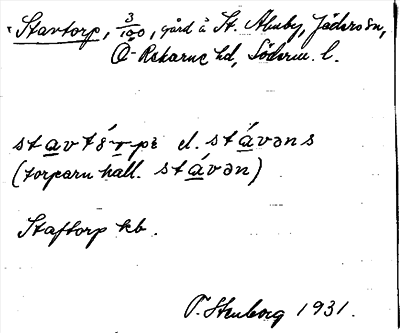 Stavtorp, 3/100, gård å St. Åluby, Jäders sn,
Ö-Rekarne hd, Söderm. l.
stavtórpɛ el. stávəns
(torparn kall. stávən)
Staftorp kb.
P. Stenborg 1931.